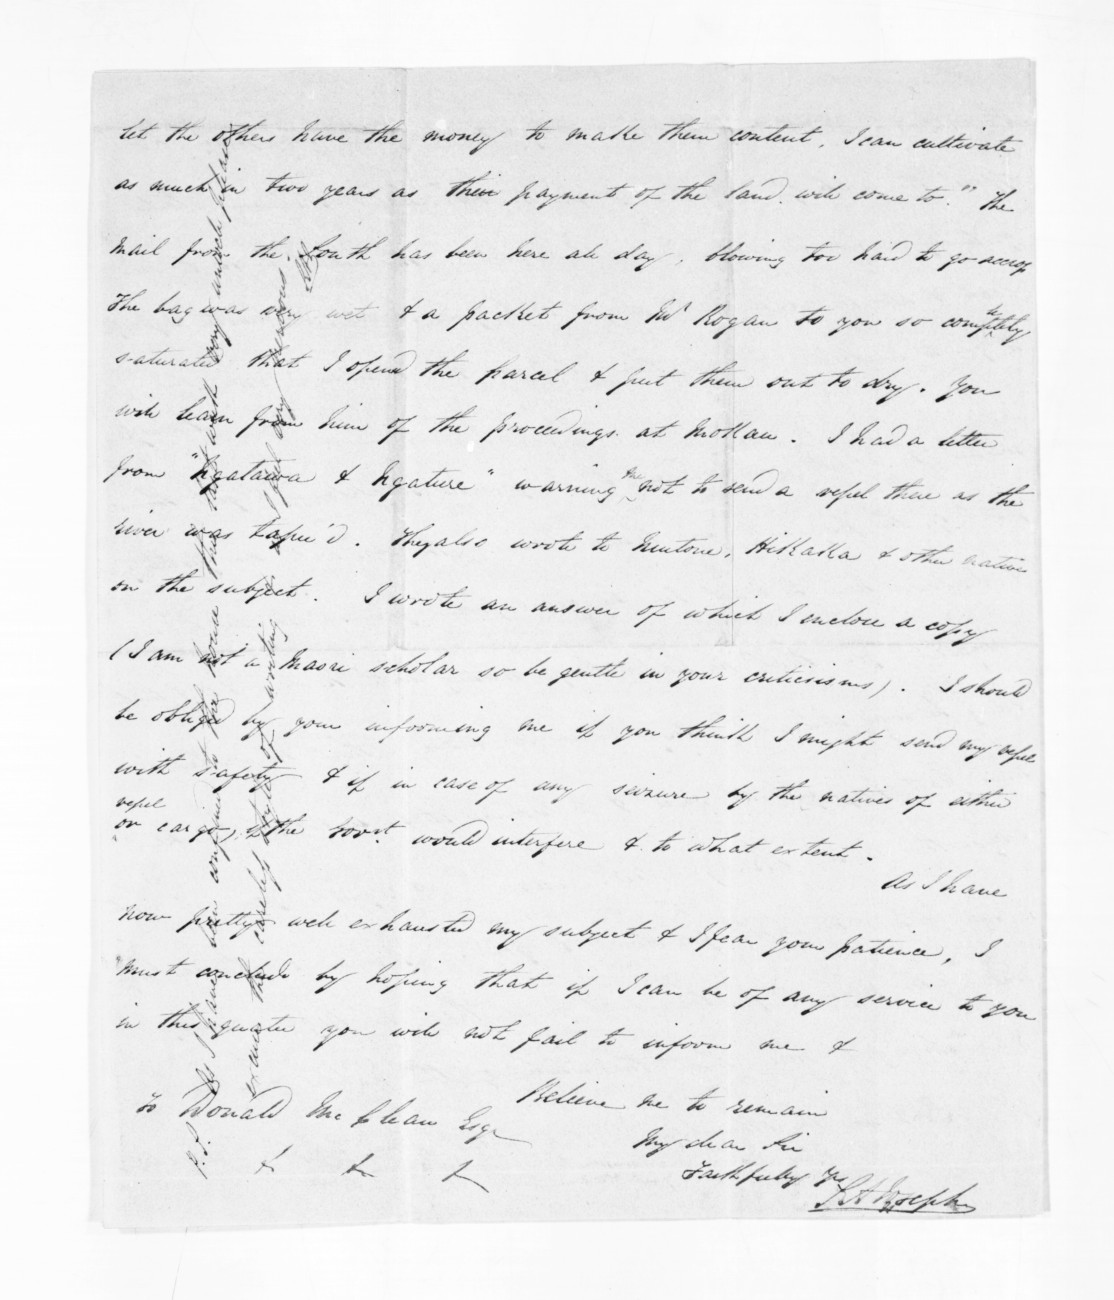 let the others have the money to make them content, I can cultivate
as much in two years as their payment of the land will come to." The
Mail from the South has been here all day, blowing too hard to go across
The bag was very wet & a packet from Mr Rogan to you so completely
saturated that I opened the parcel & put them out to dry. You
will learn from him of the proceedings at Mokau. I had a letter
from "Ngatawa & Ngature" warning me not to send a vessel there as the
river was tapu'd. They also wrote to Newtone, Hikaka & other natives
on the subject. I wrote an answer of which I enclose a copy
(I am not a Maori scholar so be gentle in your criticisms). I should
be obliged by your informing me if you think I might send my vessel
with safety & if in case of any seizure by the natives of either
vessel
or cargo, if the Govt. would interfere & to what extent.
As I have
now pretty well exhausted my subject & I fear your patience, I
must conclude by hoping that if I can be of any service to you
in this quarter you will not fail to inform me &
Believe me to remain
My dear Sir
Faithfully Yrs
S A Joseph
To Donald McClean Esqr
& & &
P.S. As I have been confined to the house this day with very much pain
excuse the careless style of writing & I feel very nervous
SAJ